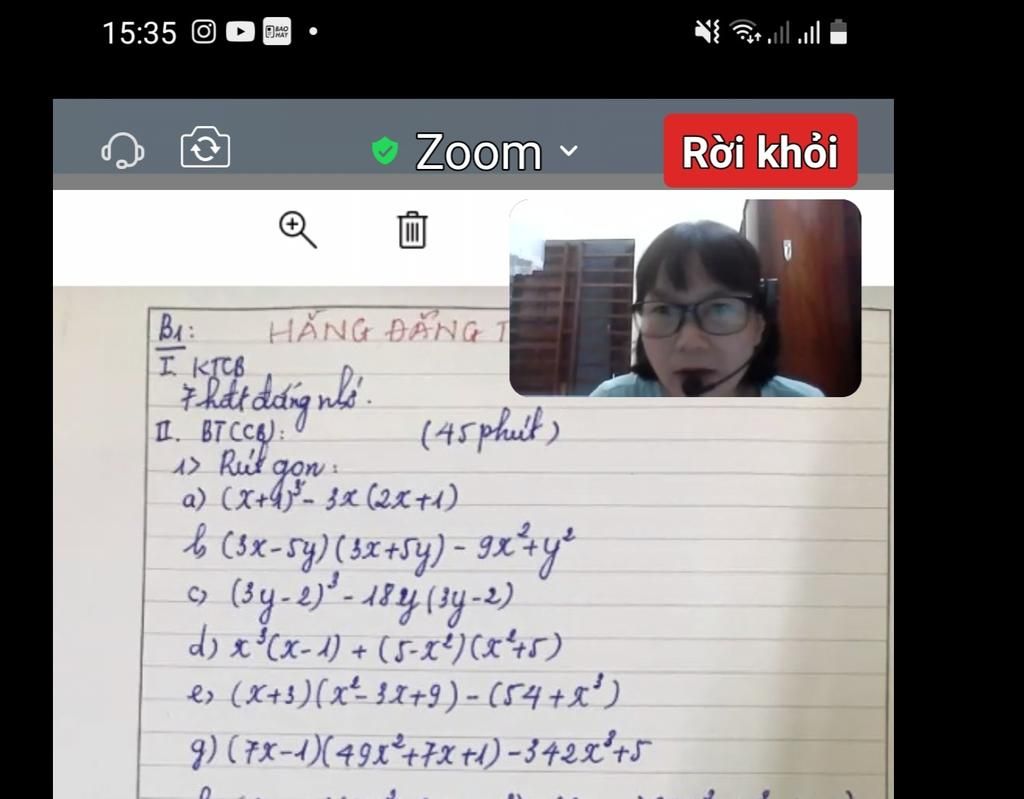 15:35
Zoom
Rời khỏi
B1: HẰNG ĐẲNG T
I. KTCB
7 hđt đáng nhớ.
II. BT(CB): (45 phút)
1> Rút gọn:
a) (x+1)³ - 3x(2x+1)
b (3x-5y)(3x+5y) - 9x²+y²
c) (3y-2)³ - 18y(3y-2)
d) x³(x-1) + (5-x²)(x²+5)
e) (x+3)(x²-3x+9) - (54+x³)
g) (7x-1)(49x²+7x+1) - 342x³+5